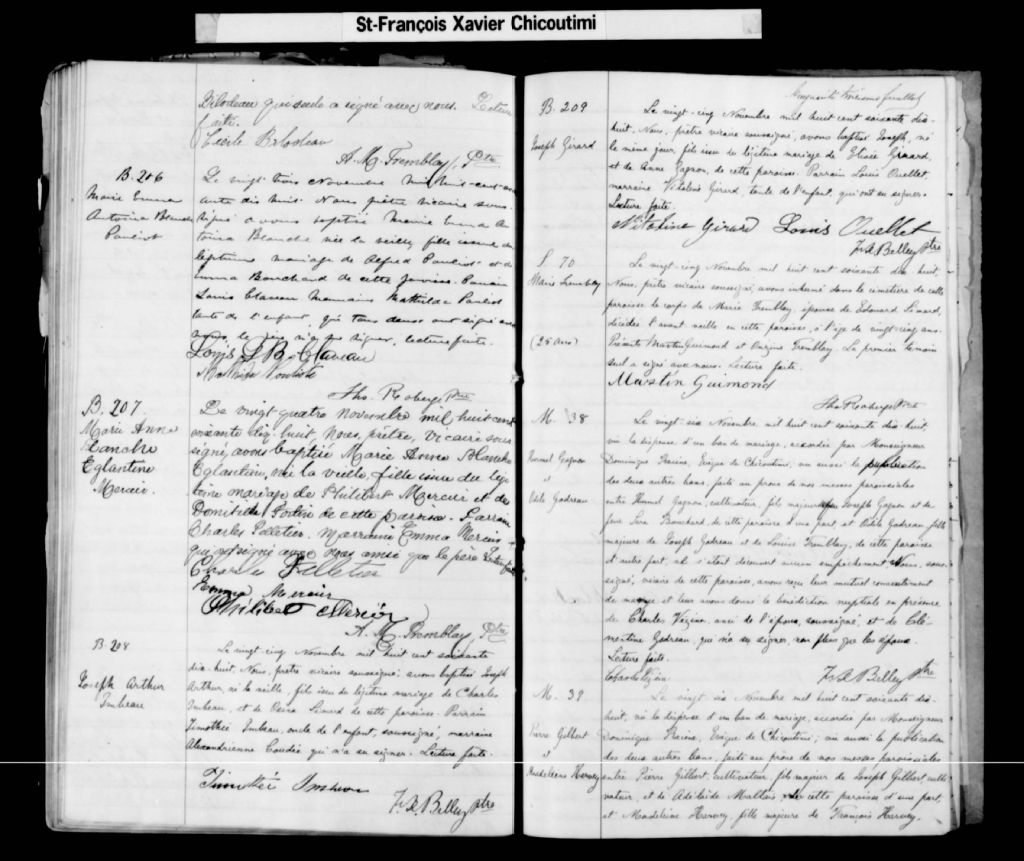 St-François Xavier Chicoutimi
Bilodeau qui seule a signé avec nous. Lecture
faite.
Cécile Bilodeau
A. M. Tremblay, Ptre
B. 206
Marie Emma
Antoina Blanche
Pouliot
Le vingt trois Novembre mil huit-cent-soix
ante dix huit. Nous prêtre vicaire sous-
signé avons baptisé Marie Emma An
toina Blanche née la veille, fille issue du
légitime mariage de Alfred Pouliot et d'E
mma Bouchard de cette paroisse. Parrain
Louis Claveau Marraine Mathilde Pouliot
tante de l'enfant, qui tous deux ont signé avec
nous, le père n'a pu signer. Lecture faite.
Louis Claveau
Mathilde Pouliot
Ths. Roberge Ptre
B. 207
Marie Anne
Blanche
Eglantine
Mercier.
Le vingt quatre novembre mil huit cent
soixante dix-huit, Nous, prêtre, vicaire sous
signé, avons baptisé Marie Anne Blanche
Eglantine, née la veille, fille issue du légi
time mariage de Philibert Mercier et de
de cette paroisse. Parrain
Charles Pelletier, Marraine Emma Mercier
qui ont signé avec nous ainsi que le père. Lecture faite
Charles Pelletier
Emma Mercier
Philibert Mercier
A. M. Tremblay, Ptre
B. 208
Joseph Arthur
Imbeau
Le vingt-cinq Novembre mil huit cent soixante
dix-huit, Nous, prêtre vicaire soussigné, avons baptisé Joseph
Arthur, né la veille, fils issu du légitime mariage de Charles
Imbeau, et de Simard de cette paroisse. Parrain
Timothée Imbeau, oncle de l'enfant, soussigné, marraine
Alexandrienne qui n'a su signer. Lecture faite.
Timothée Imbeau
F. X. Belley ptre
B. 209
Joseph Girard
Cinquante troisième feuillet
Le vingt-cinq Novembre mil huit cent soixante dix-
huit, Nous, prêtre vicaire soussigné, avons baptisé Joseph, né
le même jour, fils issu du légitime mariage de Elisée Girard,
et de Anne Gagnon, de cette paroisse. Parrain Louis Ouellet,
marraine Vitaline Girard, tante de l'enfant, qui ont su signer.
Lecture faite.
Vitaline Girard Louis Ouellet
F. X. Belley ptre
S. 70
Marie Tremblay
(25 ans)
Le vingt-cinq Novembre mil huit cent soixante dix huit,
Nous, prêtre vicaire soussigné, avons inhumé dans le cimetière de cette
paroisse le corps de Marie Tremblay, épouse de Edouard Simard,
décédée l'avant veille en cette paroisse, à l'âge de vingt-cinq ans.
Présents Martin Guimond et Onézime Tremblay. Le premier témoin
seul a signé avec nous. Lecture faite.
Martin Guimond
Ths Roberge Ptre
M. 38
Gagnon
&
Odile Godreau
Le vingt-six Novembre mil huit cent soixante dix-huit,
vu la dispense d'un ban de mariage, accordée par Monseigneur
Dominique Racine, Evêque de Chicoutimi, vu aussi la publication
des deux autres bans, faite au prône de nos messes paroissiales
entre Gagnon, cultivateur, fils majeur de Joseph Gagnon et de
feue Bouchard, de cette paroisse d'une part, et Odile Godreau fille
majeure de Joseph Godreau et de Louise Tremblay, de cette paroisse
d'autre part, et s'étant découvert aucun empêchement, Nous, sous-
signé, vicaire de cette paroisse, avons reçu leur mutuel consentement
de mariage et leur avons donné la bénédiction nuptiale en présence
de Charles Vézina, ami de l'époux, soussigné, et de Clé-
mentine Godreau, qui n'a su signer, non plus que les époux.
Lecture faite.
Charles Vézina
F. X. Belley ptre
M. 39
Pierre Gilbert
&
Madeleine Harvey
Le vingt six Novembre mil huit cent soixante dix-
huit, vu la dispense d'un ban de mariage, accordée par Monseigneur
Dominique Racine, Evêque de Chicoutimi; vu aussi la publication
des deux autres bans, faite au prône de nos messes paroissiales
entre Pierre Gilbert, cultivateur, fils majeur de Joseph Gilbert, culti
vateur, et de Adélaïde Maltais de cette paroisse d'une part,
et Madeleine Harvey, fille majeure de François Harvey,